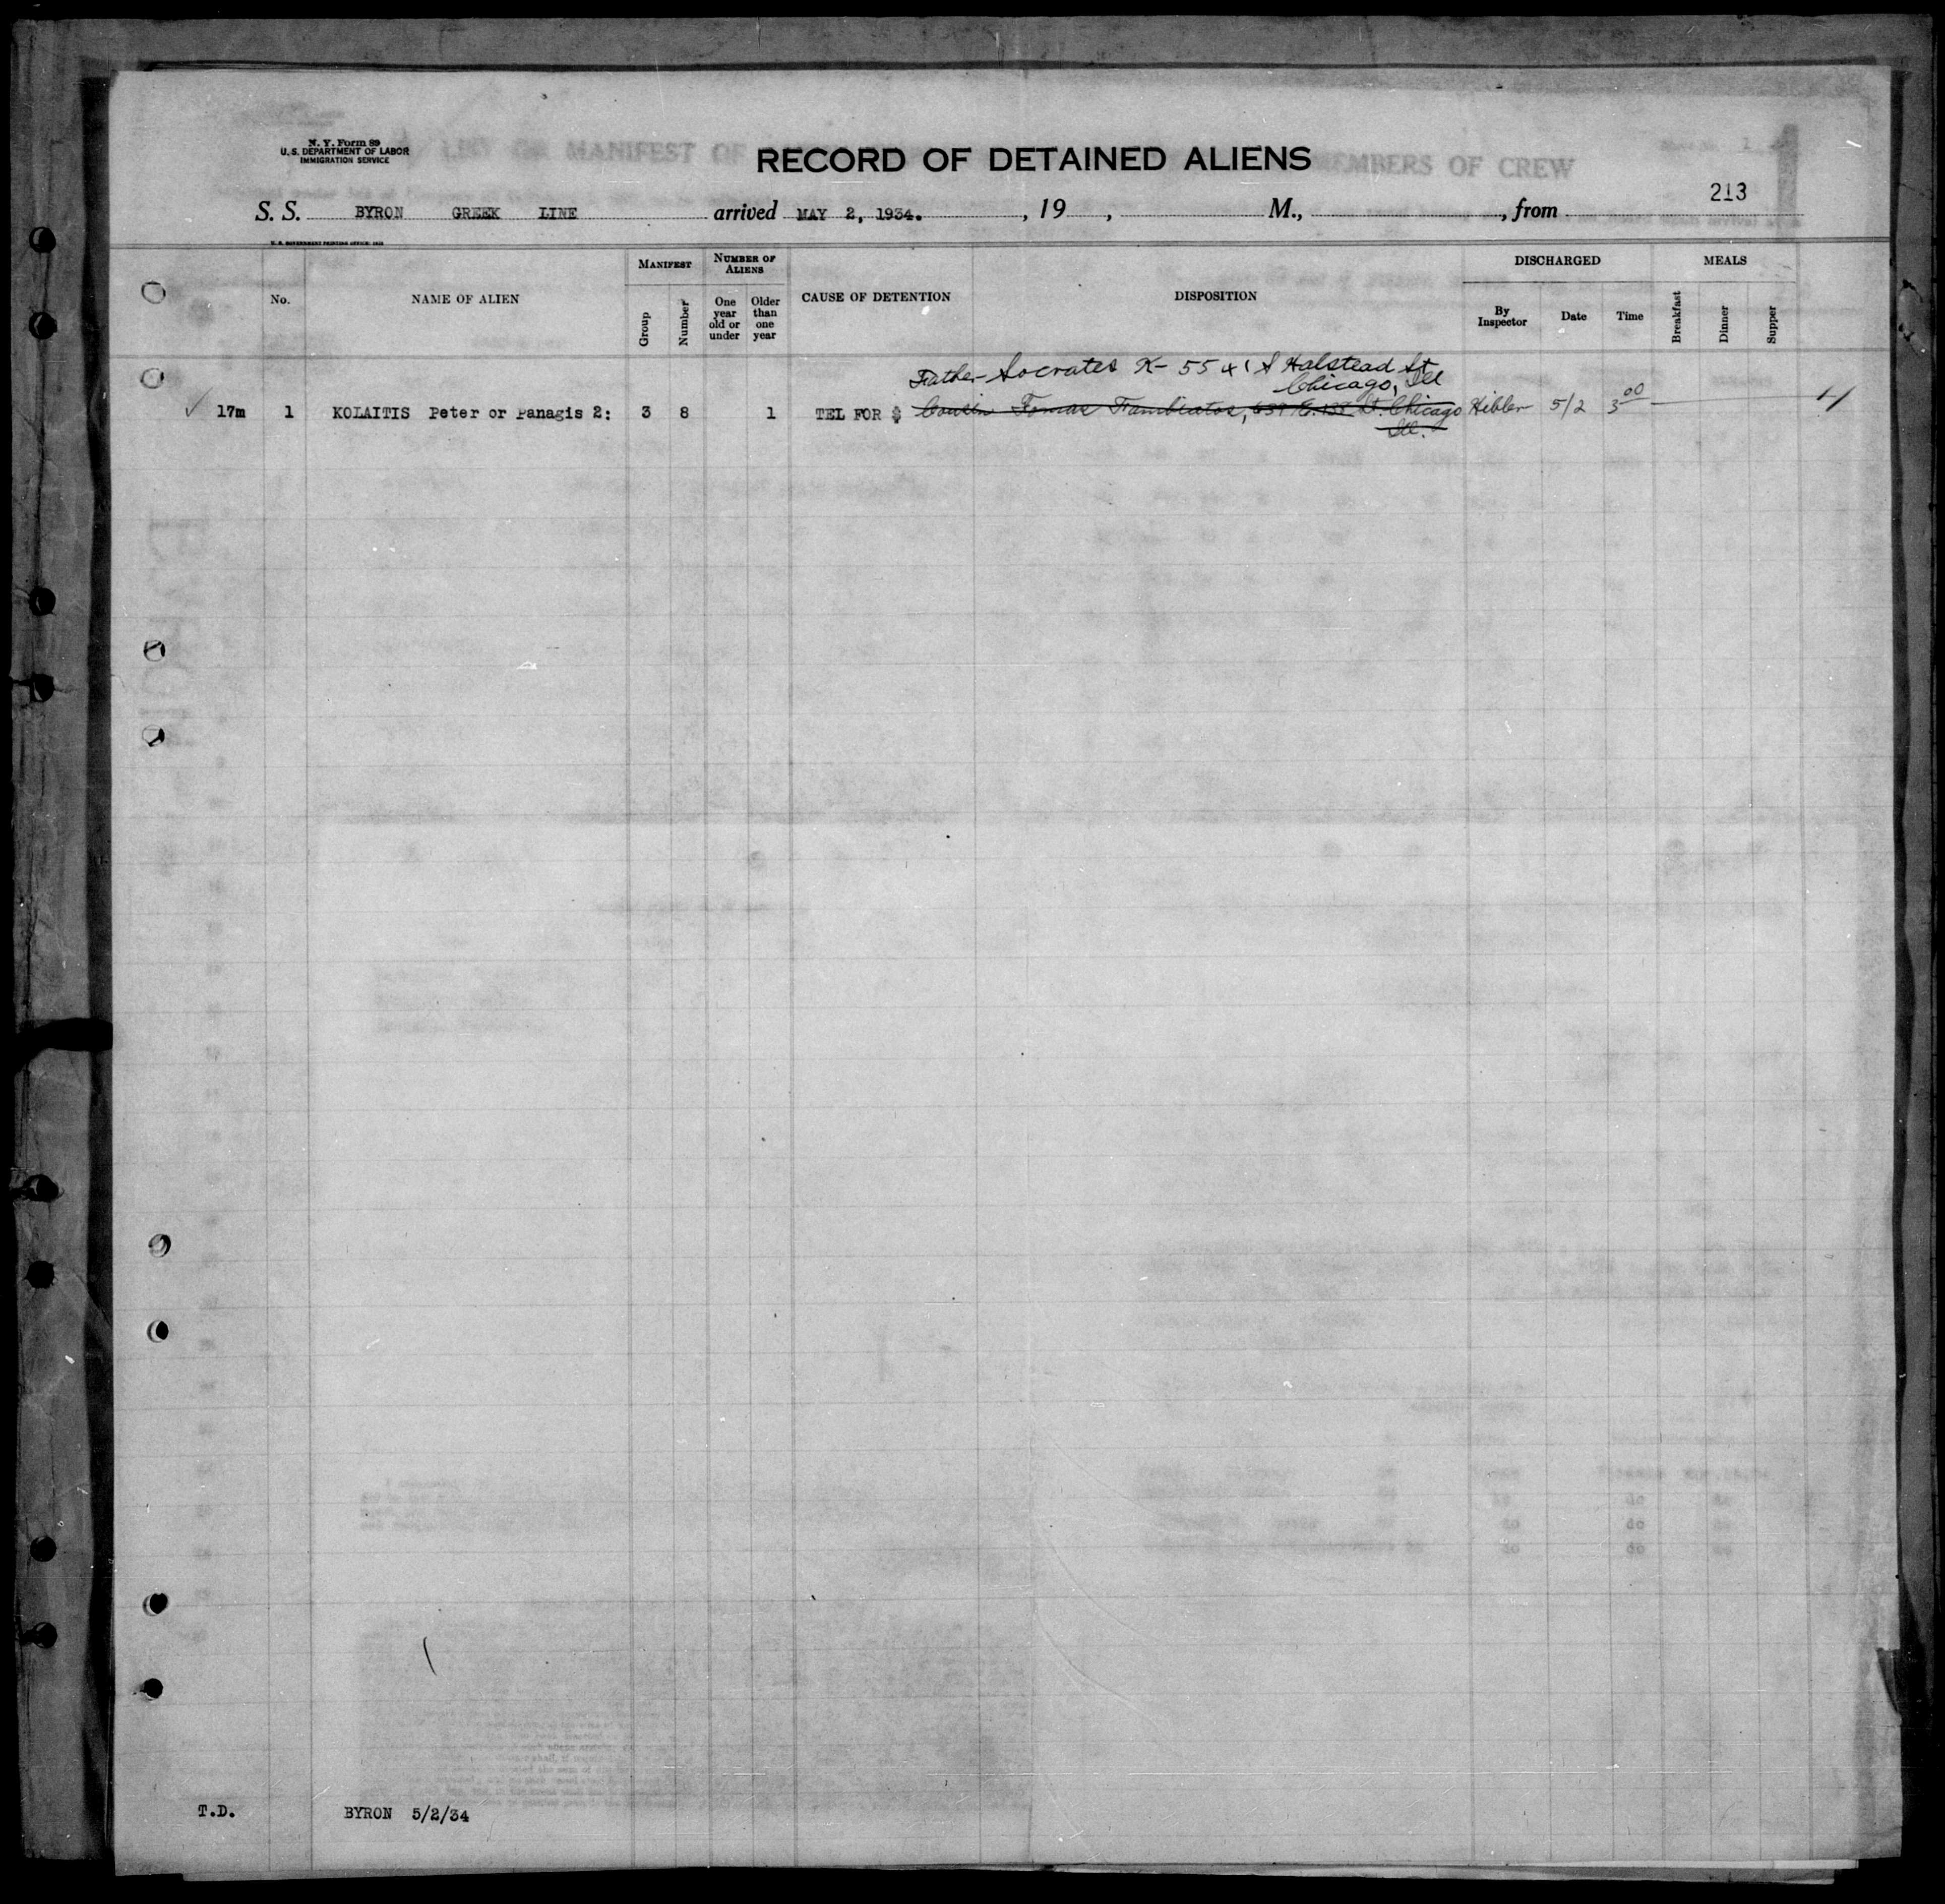 N. Y. Form 89
U. S. DEPARTMENT OF LABOR
IMMIGRATION SERVICE
RECORD OF DETAINED ALIENS
213
S. S. BYRON GREEK LINE arrived MAY 2, 1934. , 19 , M., , from
U. S. GOVERNMENT PRINTING OFFICE
No.
NAME OF ALIEN
MANIFEST
Group
Number
NUMBER OF ALIENS
One year old or under
Older than one year
CAUSE OF DETENTION
DISPOSITION
DISCHARGED
By Inspector
Date
Time
MEALS
Breakfast
Dinner
Supper
Father - Socrates K- 5541 S Halstead St
Chicago, Ill
17m 1 KOLAITIS Peter or Panagis 2: 3 8 1 TEL FOR $ Cousin Tomas St. Chicago Hibler 5/2 3 00
Ill.
T.D. BYRON 5/2/34
LIST OR MANIFEST OF
MEMBERS OF CREW